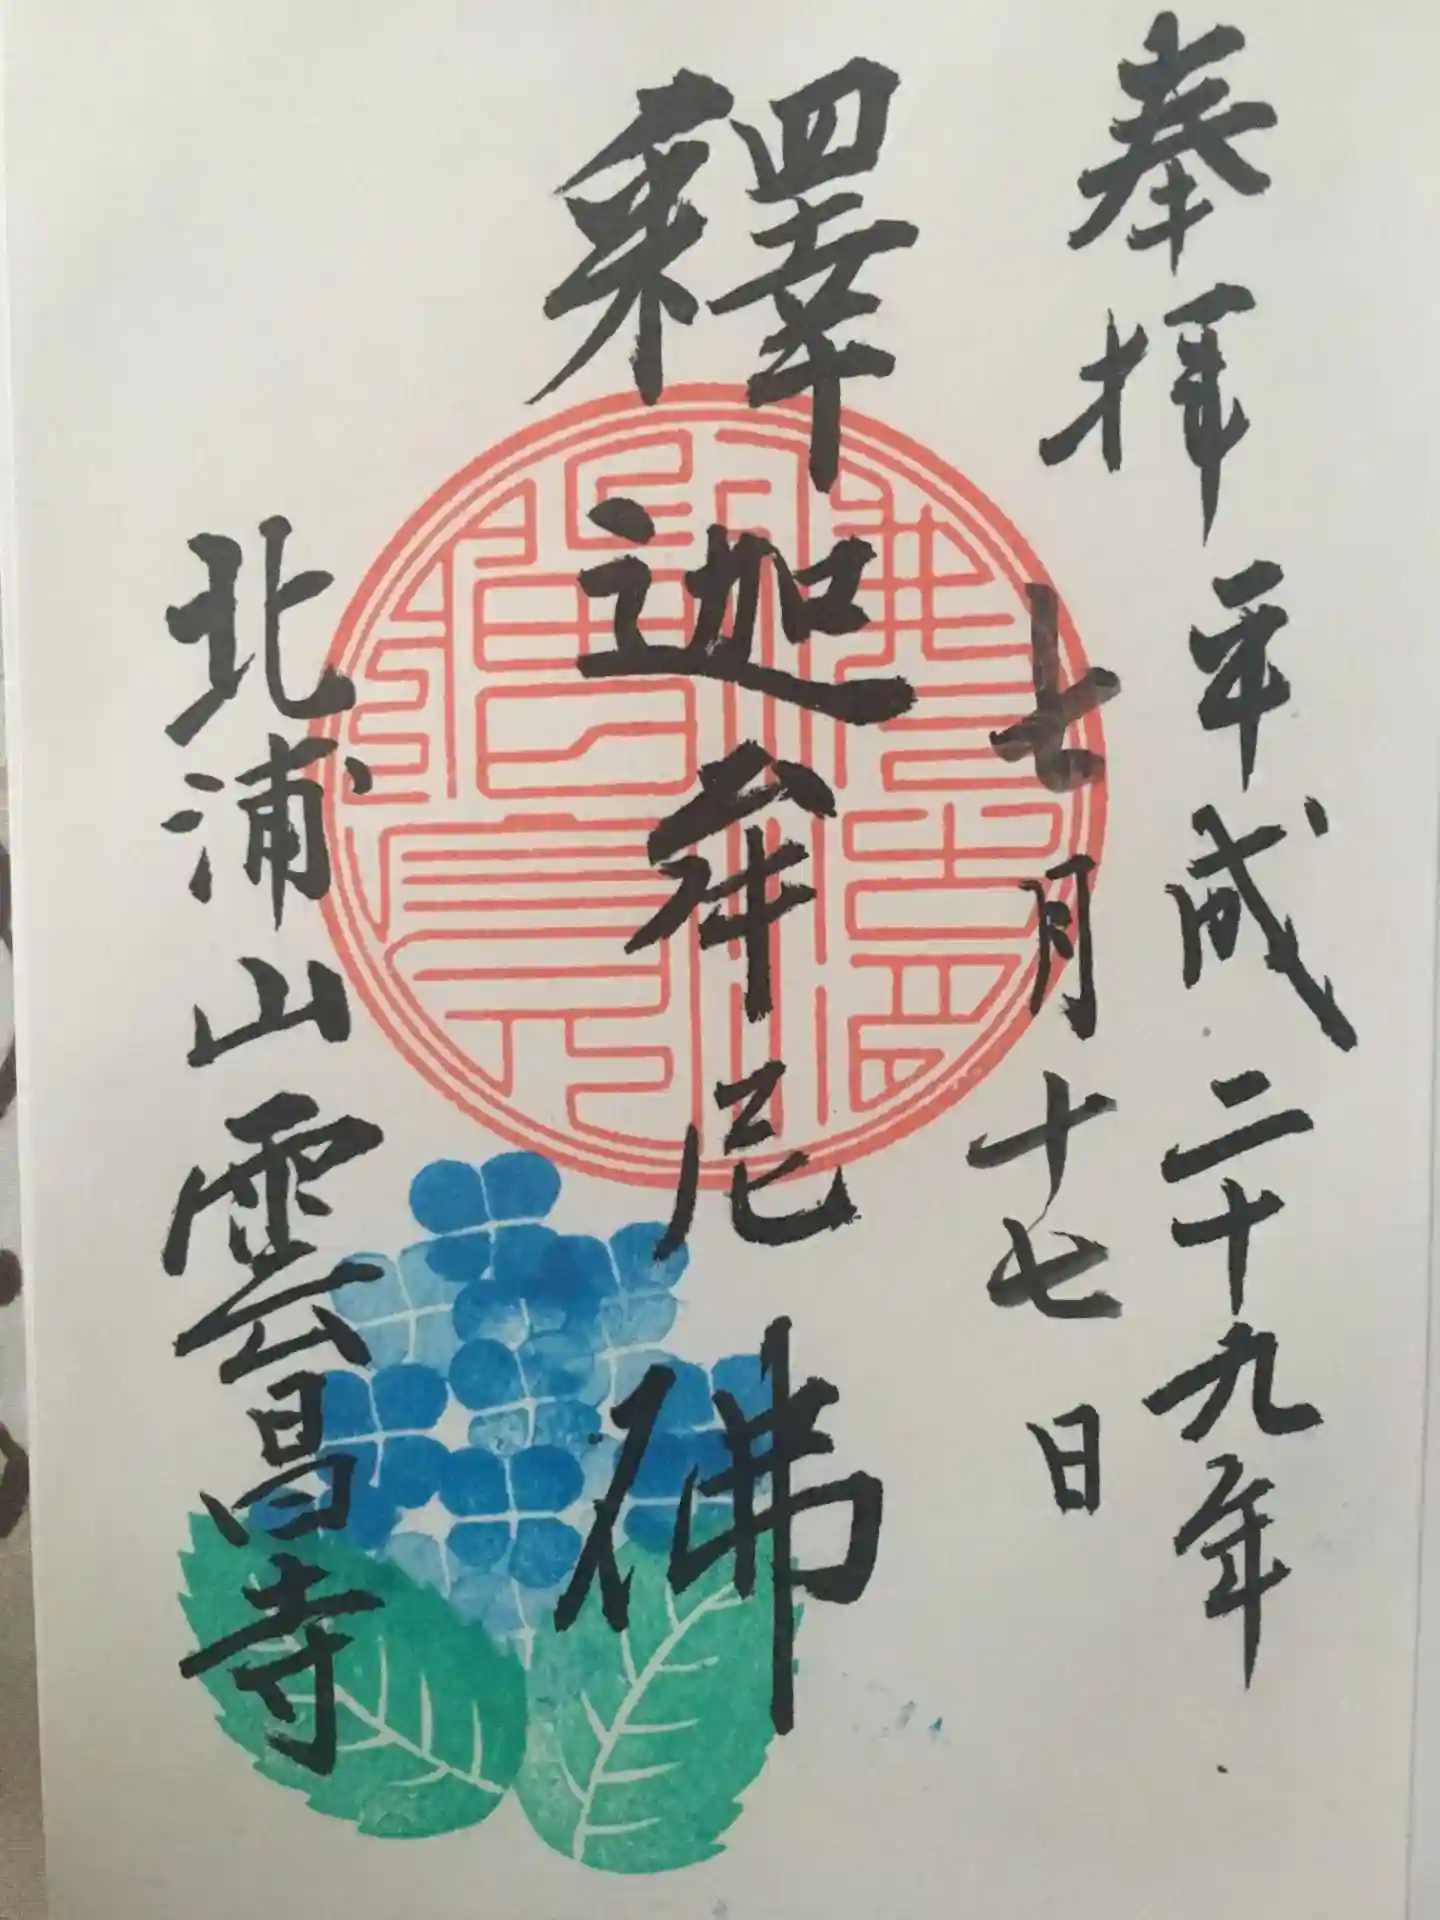 奉拝 平成二十九年
七月十七日
釋迦牟尼佛
北浦山雲昌寺